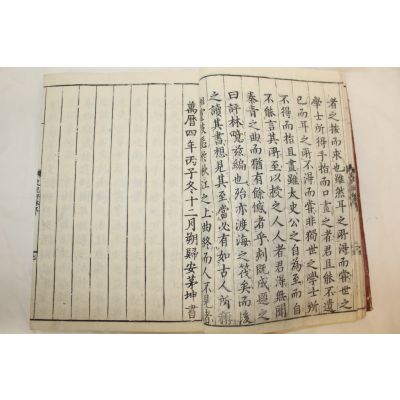 者之按而求也雖然耳之所得而嘗世之
學士所得手指而口畫之者君且能不遺
已而耳之所不得而嘗非獨世之學士所
不得而指且畫雖太史公之自為至而自
不能言其所至以授之人人者君得無聞
秦青之曲而猶有餘憾者乎刻既成題之
曰評林嘅玆編也殆亦渡海之筏矣而後
之讀其書想見其至當必有如古人所稱
湘靈鼓瑟於秋江之上曲終而人不見者
萬曆四年丙子冬十二月朔歸安茅坤書